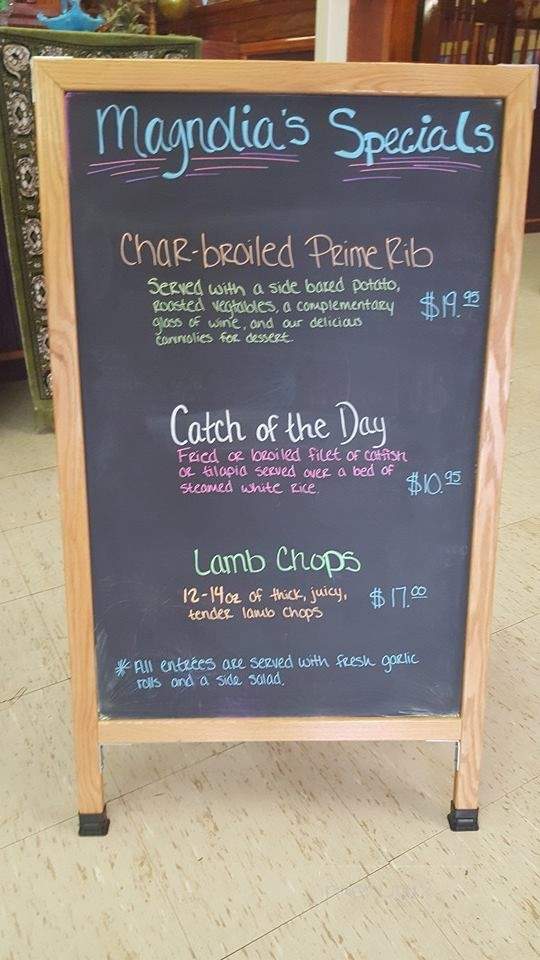 Magnolia's Specials
Char-broiled Prime Rib
Served with a side baked potato,
roasted vegtables, a complementary
glass of wine, and our delicious
cannolies for dessert.
$19.95
Catch of the Day
Fried or broiled filet of catfish
or tilapia served over a bed of
steamed white rice.
$10.95
Lamb Chops
12-14oz of thick, juicy,
tender lamb chops
$17.00
* All entrées are served with fresh garlic
rolls and a side salad.